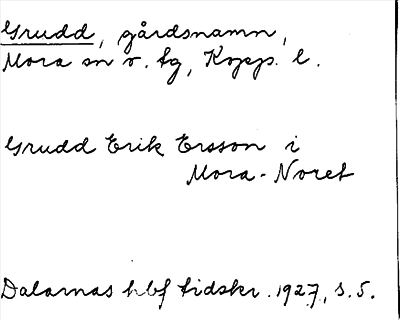 Grudd, gårdsnamn,
Mora sn o. tg, Kopp. l.
Grudd Erik Ersson i
Mora-Noret
Dalarnas hbf tidskr. 1927, s. 5.